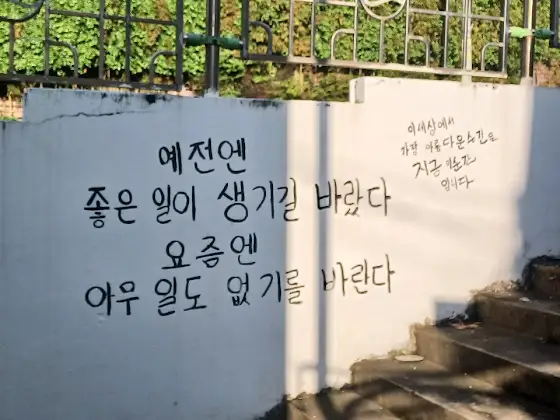 예전엔
좋은 일이 생기길 바랐다
요즘엔
아무 일도 없기를 바란다
이세상에서
가장 아름다운순간은
지금 이순간
입니다